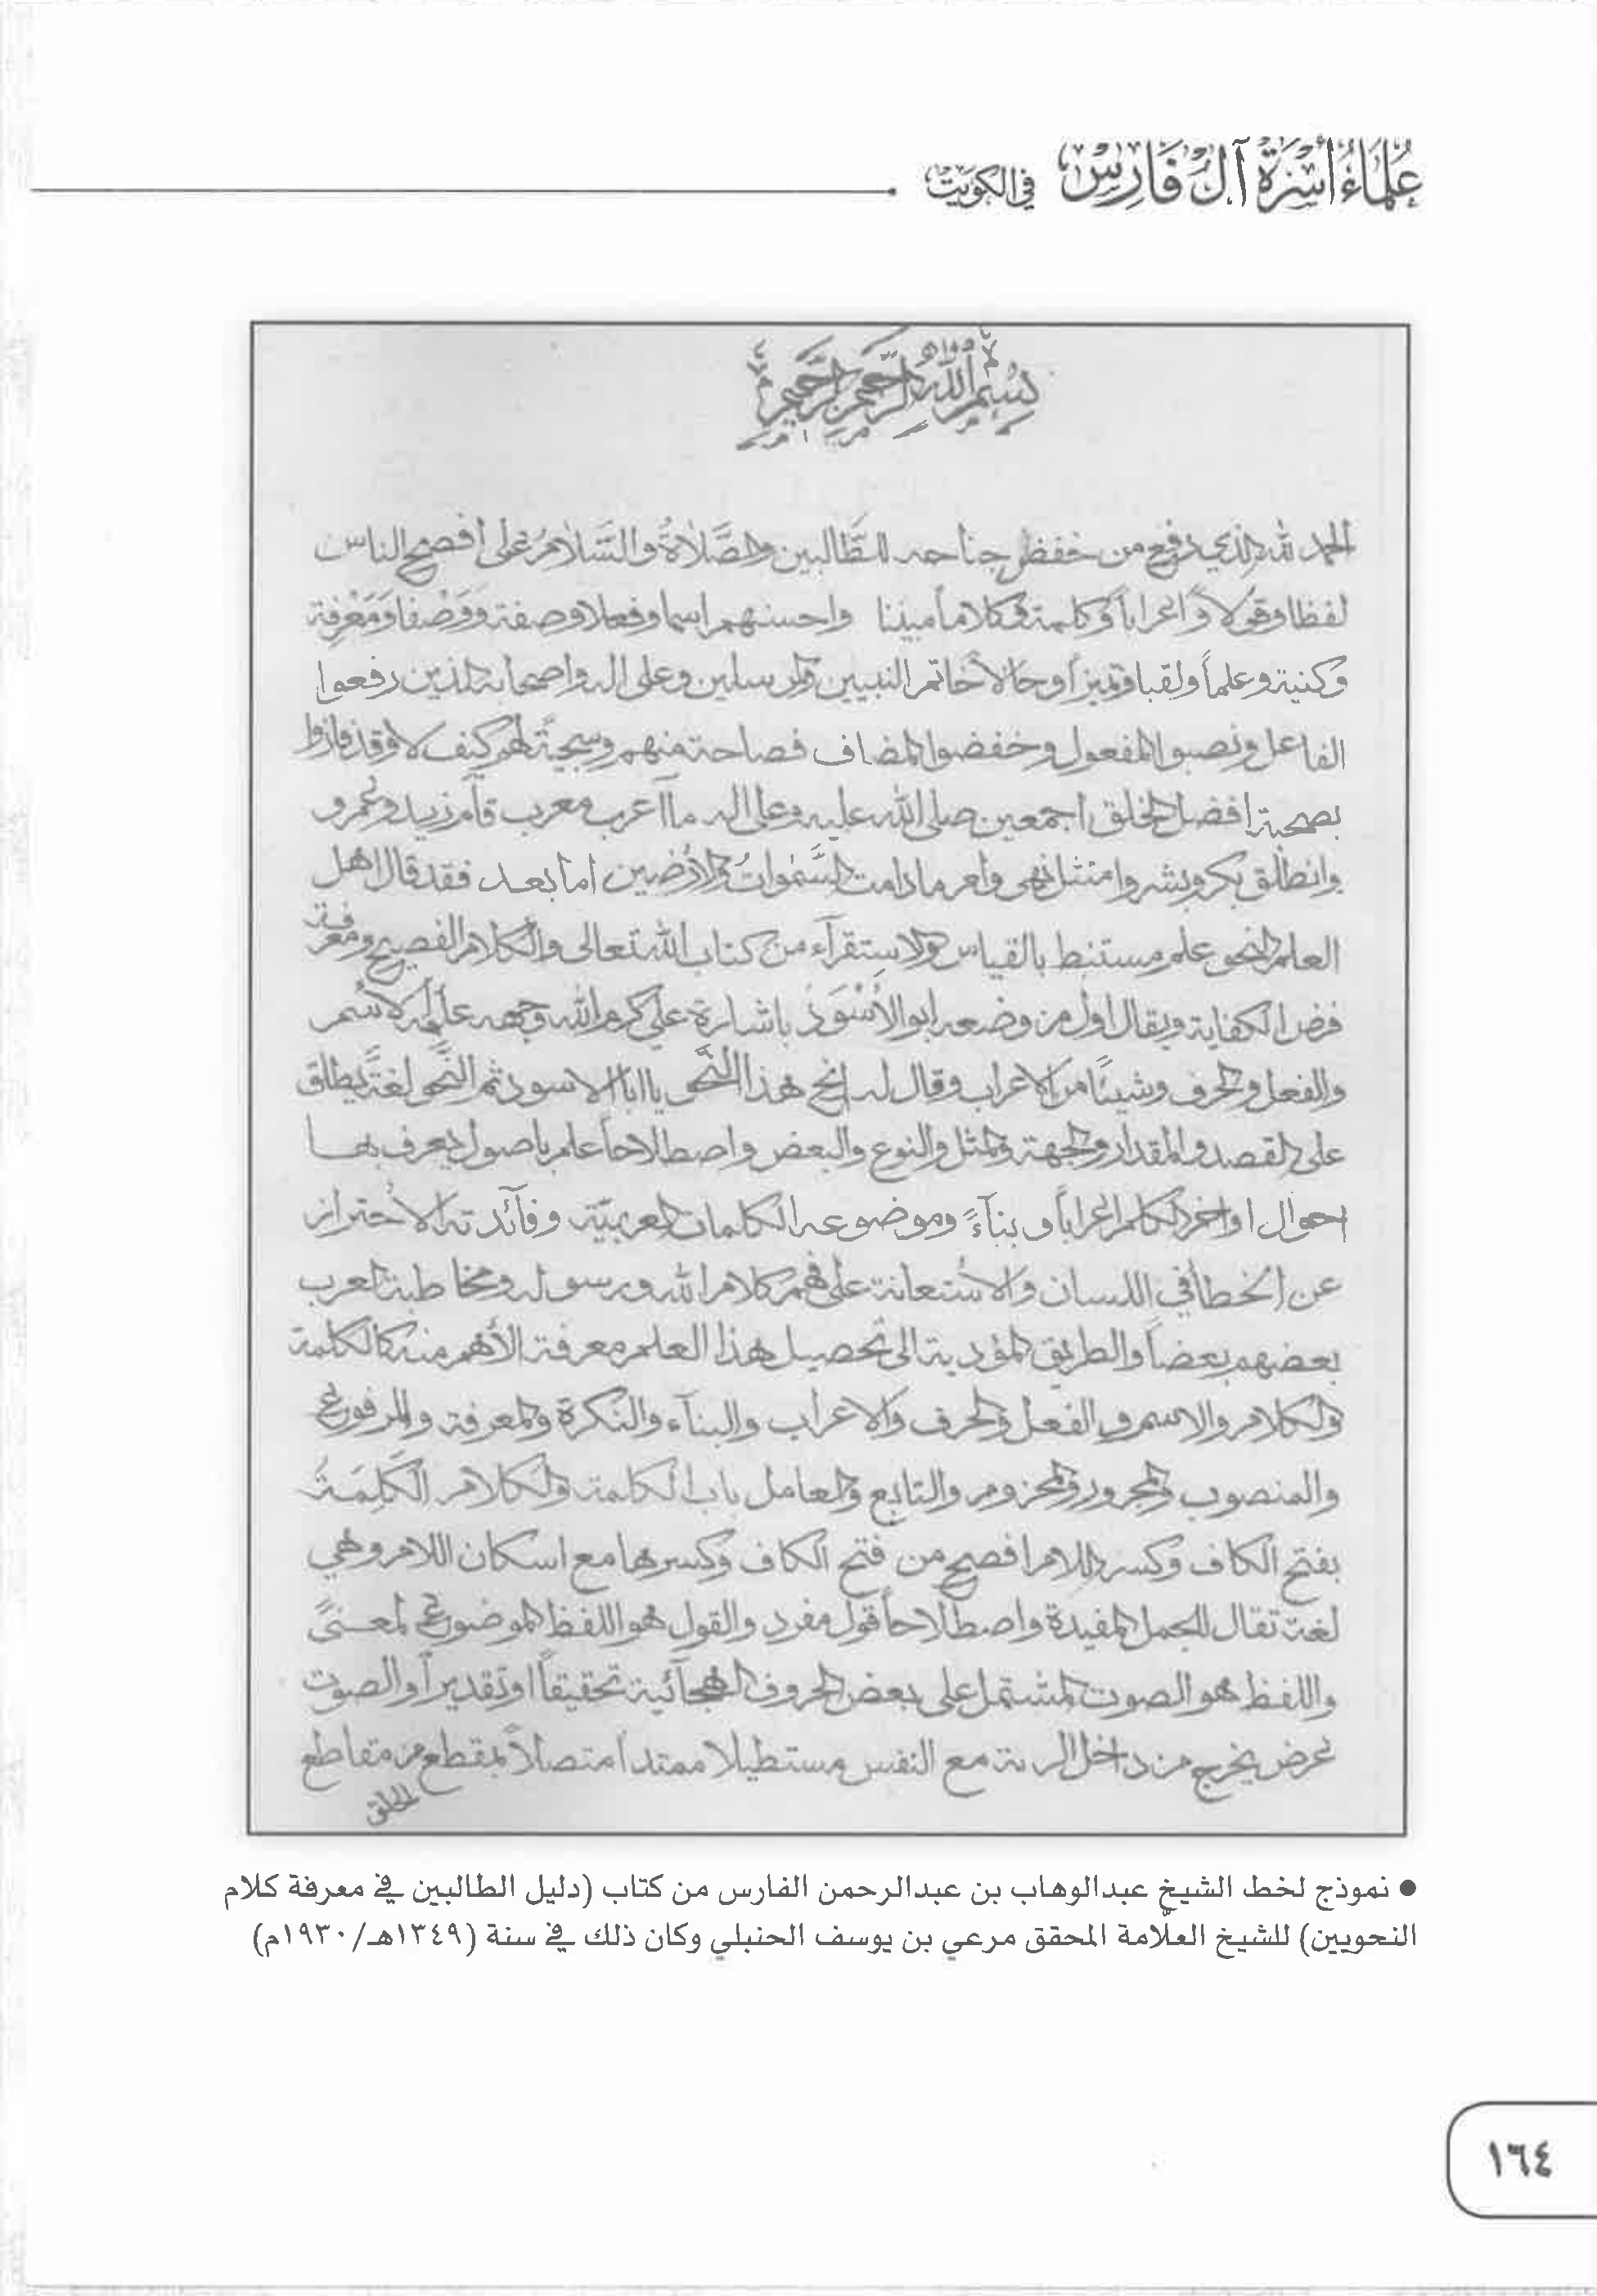 علماء أسرة آل فارس في الكويت
بسم الله الرحمن الرحيم
الحمد لله الذي رفع من خفظ جناحه للطَّالبين والصَّلاةُ والسَّلامُ على أفصح الناس
لفظا وقولا وَّاعراباً وَّكلمة وكلاما مبينا واحسنهم اسما وفعلا وصفة وَوَصْفا وَمَعْرِفة
وكنية وعلماً ولقبا وتميزاً وحالا خاتم النبيين والمرسلين وعلى اله واصحابه الذين رفعوا
الفاعل ونصبوا المفعول وخفضوا المضاف فصاحة منهم وسجيةً لهم كيف لا وقد فازوا
بصحبة افضل الخلق اجمعين صلى الله عليه وعلى اله ما اعرب معرب قآم زيد وعمرو
وانطلق بكر وبشر وامتثل نهي وامر ما دامت السَّمٰواتُ والارْضين اما بعد فقد قال اهل
العلم النحو علم مستنبط بالقياس والاستقرآء من كتاب الله تعالى والكلام الفصيح ومعرفته
فرض الكفاية ويقال اول من وضعه ابو الاسْوَد باشارة علي كرم الله وجهه علمه الاسم
والفعل والحرف وشيئًا من الاعراب وقال له انح هذا النَّحو يا ابا الاسود ثم النَّحو لغةً يطلق
على القصد والمقدار والجهة والمثل والنوع والبعض واصطلاحاً علم باصول يعرف بها
احوال اواخر الكلم اعراباً و بنآءً وموضوعه الكلمات العربيّة وفآئدته الاحتراز
عن الخطأ في اللسان والاستعانة على فهم كلام الله ورسوله ومخاطبة العرب
بعضهم بعضاً والطريق المؤدية الى تحصيل هذا العلم معرفة الأهم منه كالكلمة
والكلام والاسم والفعل والحرف والاعراب والبنآء والنكرة والمعرفة والمرفوع
والمنصوب والمجرور والمجزوم والتابع والعامل باب الكلمة والكلام الكَلِمَةُ
بفتح الكاف وكسر اللام افصح من فتح الكاف وكسرها مع اسكان اللام وهي
لغة تقال للجمل المفيدة واصطلاحاً قول مفرد والقول هو اللفظ الموضوع لمعنىً
واللفظ هو الصوت المشتمل على بعض الحروف الهجآئية تحقيقاً او تقديراً والصوت
عرض يخرج من داخل الرئة مع النفس مستطيلا ممتداً متصلاً بمقطع من مقاطع
الحلق
● نموذج لخط الشيخ عبدالوهاب بن عبدالرحمن الفارس من كتاب (دليل الطالبين في معرفة كلام
النحويين) للشيخ العلّامة المحقق مرعي بن يوسف الحنبلي وكان ذلك في سنة (١٣٤٩هـ/١٩٣٠م)
١٦٤